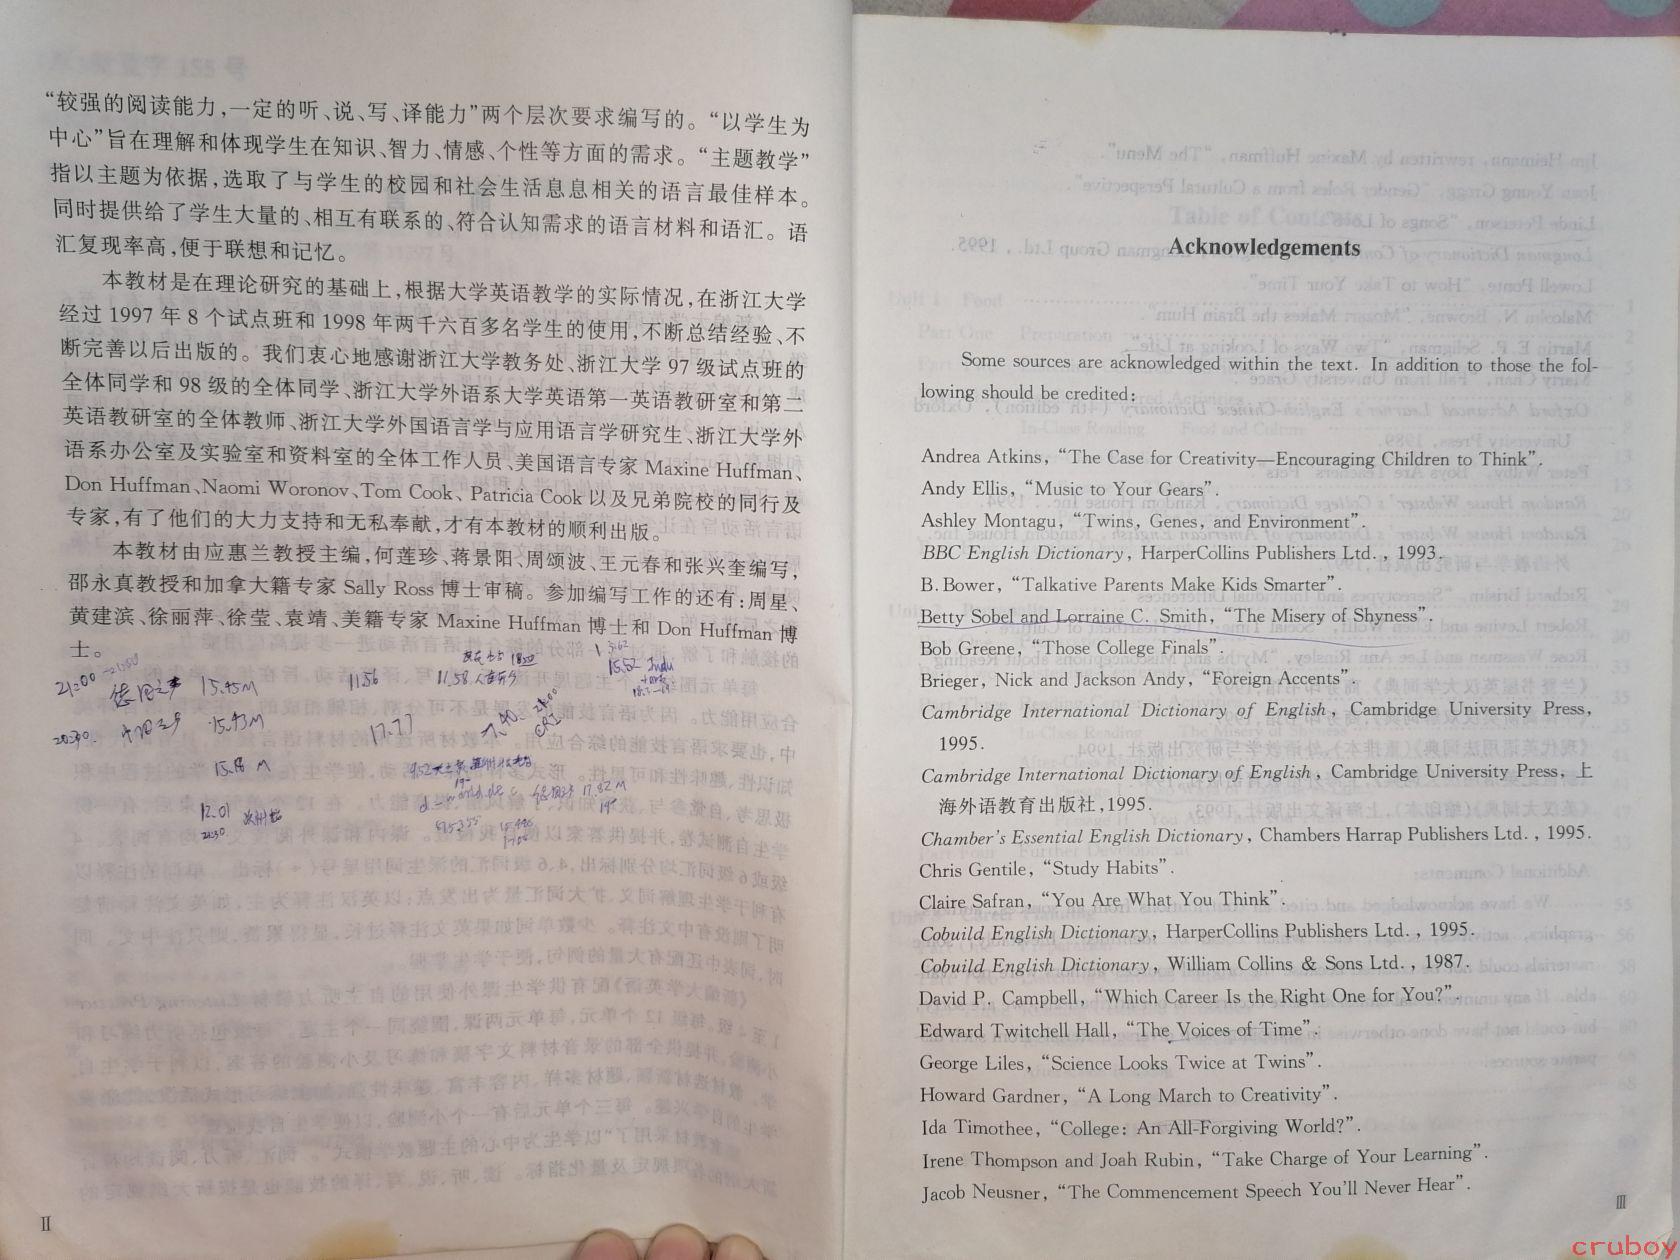 “较强的阅读能力,一定的听、说、写、译能力”两个层次要求编写的。“以学生为
中心”旨在理解和体现学生在知识、智力、情感、个性等方面的需求。“主题教学”
指以主题为依据,选取了与学生的校园和社会生活息息相关的语言最佳样本。
同时提供给了学生大量的、相互有联系的、符合认知需求的语言材料和语汇。语
汇复现率高,便于联想和记忆。
本教材是在理论研究的基础上,根据大学英语教学的实际情况,在浙江大学
经过 1997 年 8 个试点班和 1998 年两千六百多名学生的使用,不断总结经验、不
断完善以后出版的。我们衷心地感谢浙江大学教务处、浙江大学 97 级试点班的
全体同学和 98 级的全体同学、浙江大学外语系大学英语第一英语教研室和第二
英语教研室的全体教师、浙江大学外国语言学与应用语言学研究生、浙江大学外
语系办公室及实验室和资料室的全体工作人员、美国语言专家 Maxine Huffman、
Don Huffman、Naomi Woronov、Tom Cook、Patricia Cook 以及兄弟院校的同行及
专家,有了他们的大力支持和无私奉献,才有本教材的顺利出版。
本教材由应惠兰教授主编,何莲珍、蒋景阳、周颂波、王元春和张兴奎编写,
邵永真教授和加拿大籍专家 Sally Ross 博士审稿。参加编写工作的还有:周星、
黄建滨、徐丽萍、徐莹、袁靖、美籍专家 Maxine Huffman 博士和 Don Huffman 博
士。
21:00 15.45M 11.56 11.58 15.52
20:30 15.43M 17.77
15.18 M
12.01 17.82 M
II
Acknowledgements
Some sources are acknowledged within the text. In addition to those the fol-
lowing should be credited:
Andrea Atkins, “The Case for Creativity—Encouraging Children to Think”.
Andy Ellis, “Music to Your Gears”.
Ashley Montagu, “Twins, Genes, and Environment”.
BBC English Dictionary, HarperCollins Publishers Ltd., 1993.
B. Bower, “Talkative Parents Make Kids Smarter”.
Betty Sobel and Lorraine C. Smith, “The Misery of Shyness”.
Bob Greene, “Those College Finals”.
Brieger, Nick and Jackson Andy, “Foreign Accents”.
Cambridge International Dictionary of English, Cambridge University Press,
1995.
Cambridge International Dictionary of English, Cambridge University Press, 上
海外语教育出版社,1995.
Chamber’s Essential English Dictionary, Chambers Harrap Publishers Ltd., 1995.
Chris Gentile, “Study Habits”.
Claire Safran, “You Are What You Think”.
Cobuild English Dictionary, HarperCollins Publishers Ltd., 1995.
Cobuild English Dictionary, William Collins & Sons Ltd., 1987.
David P. Campbell, “Which Career Is the Right One for You?”.
Edward Twitchell Hall, “The Voices of Time”.
George Liles, “Science Looks Twice at Twins”.
Howard Gardner, “A Long March to Creativity”.
Ida Timothee, “College: An All-Forgiving World?”.
Irene Thompson and Joah Rubin, “Take Charge of Your Learning”.
Jacob Neusner, “The Commencement Speech You’ll Never Hear”.
III
cruboy